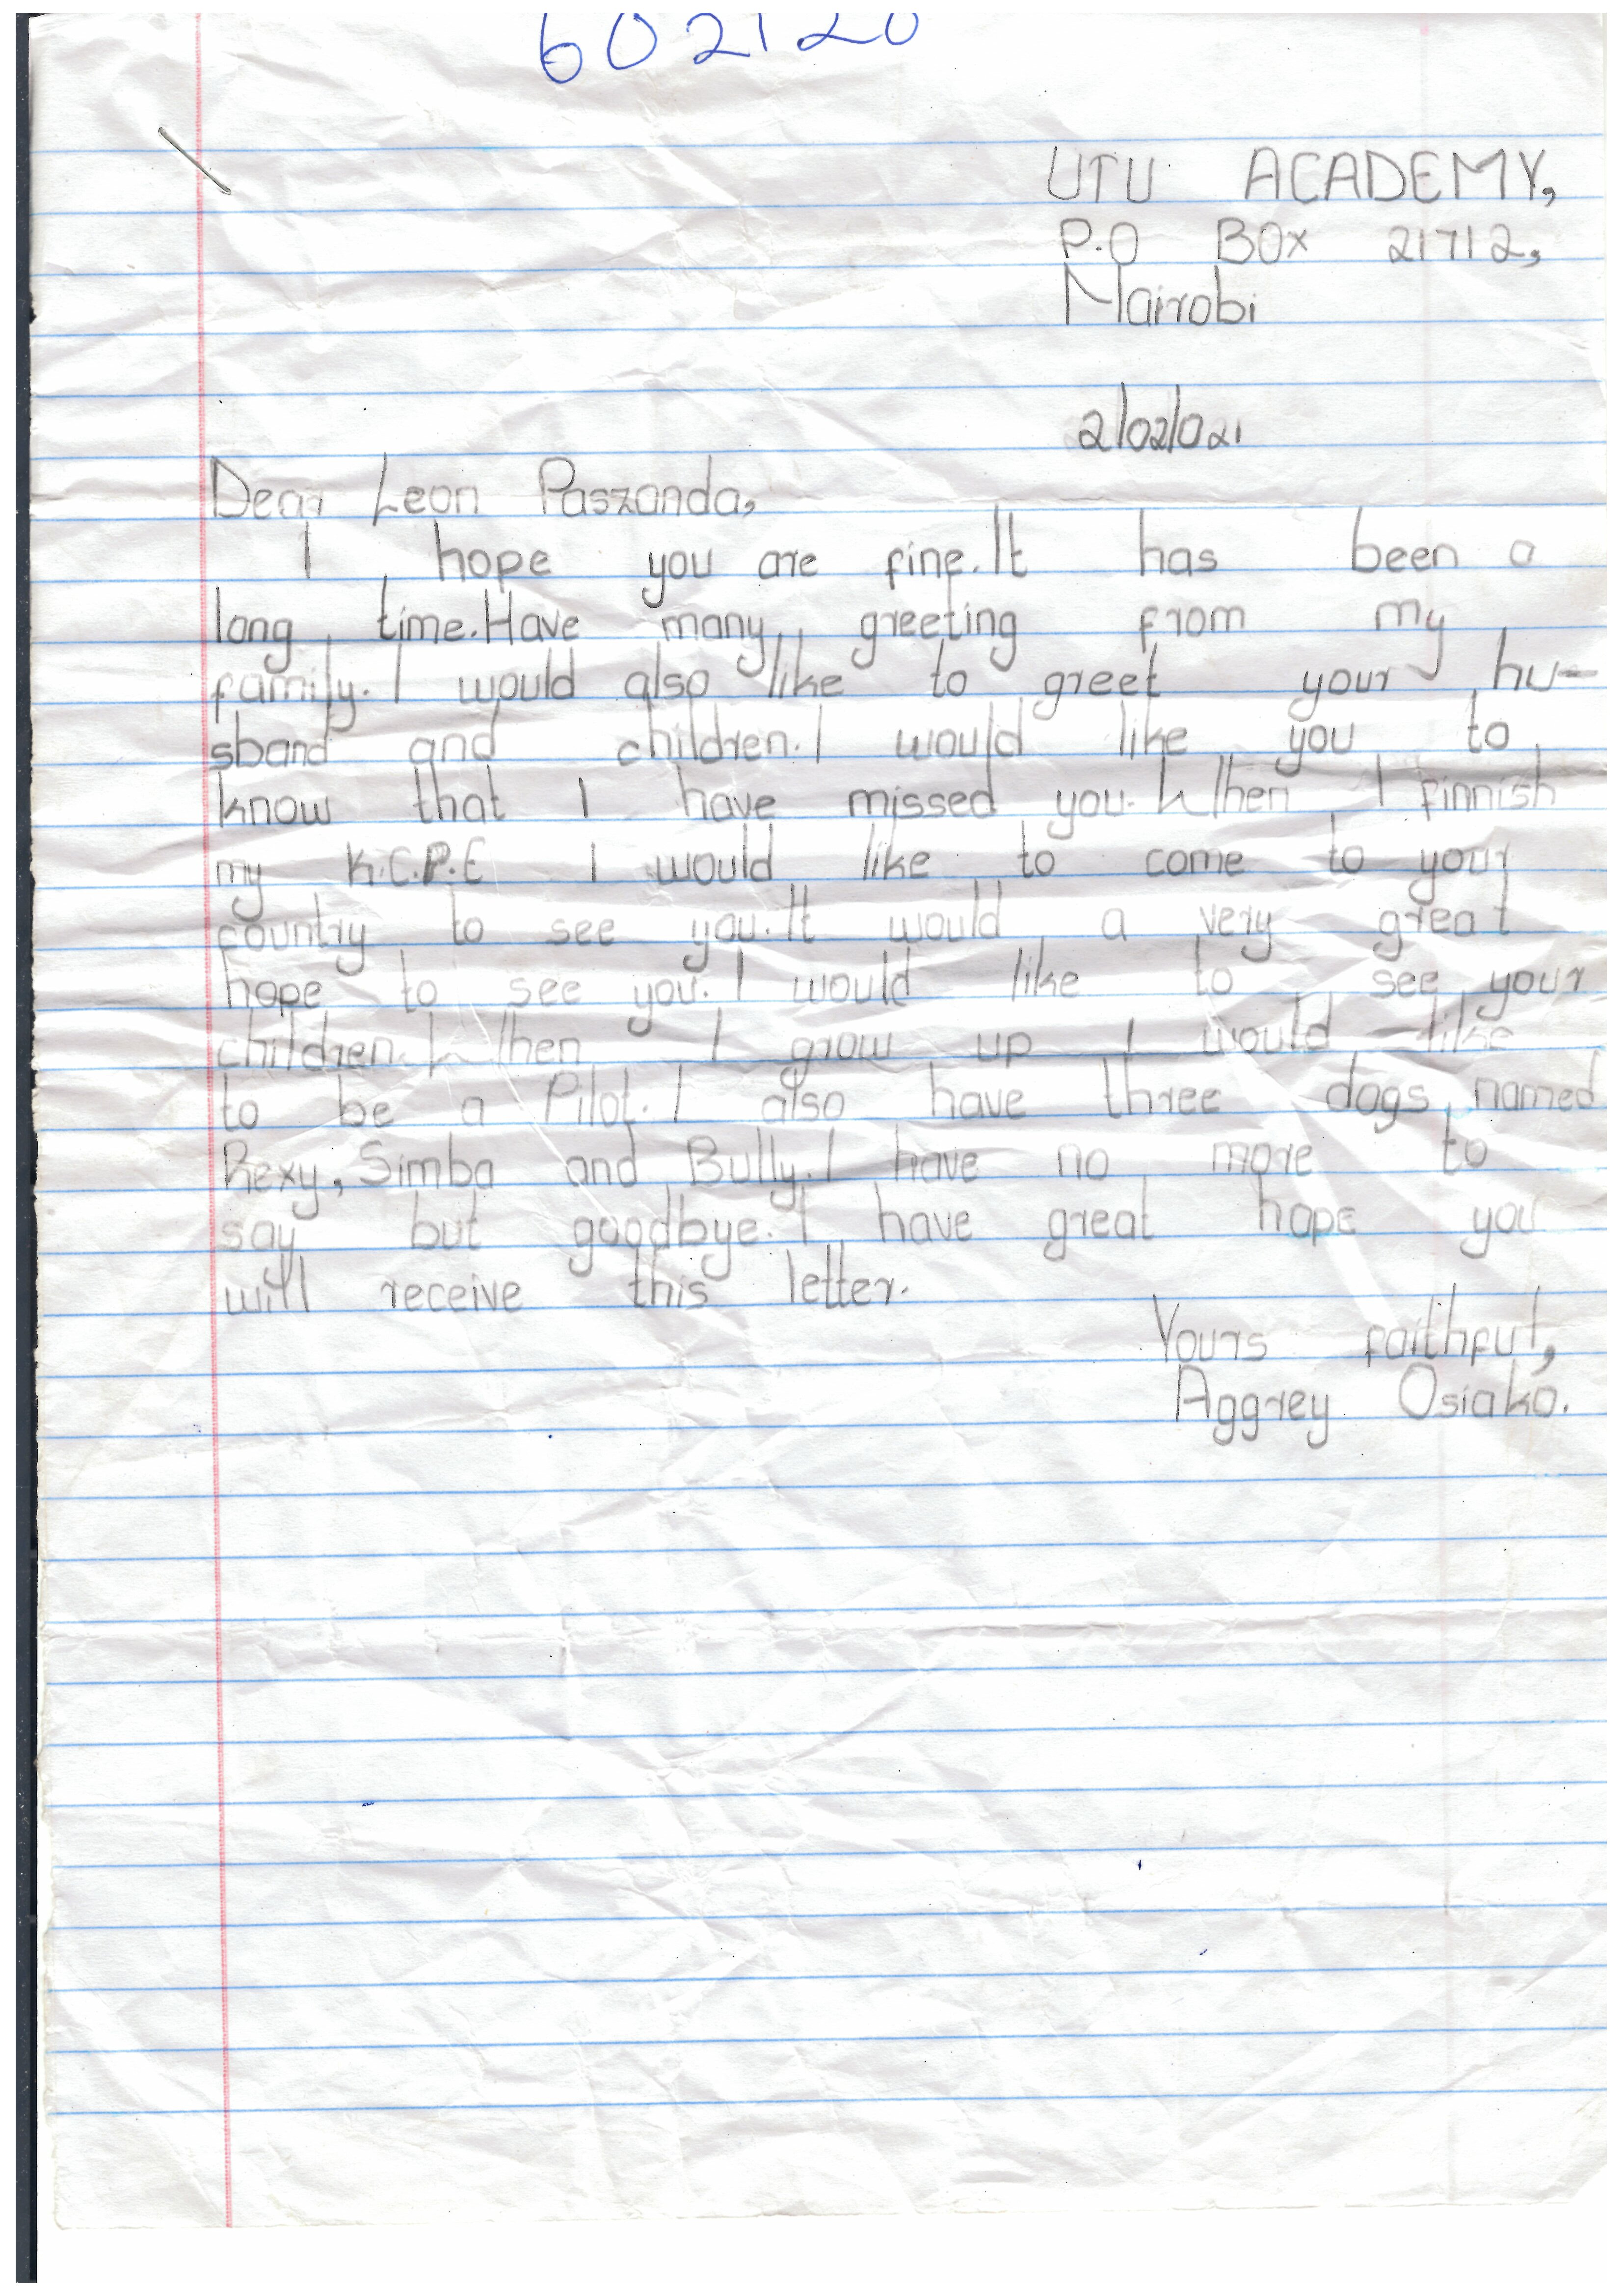 602120
UTU ACADEMY,
P.O BOX 21712,
Nairobi
2/02/021
Dear Leon Paszanda,
I hope you are fine. It has been a
long time. Have many greeting from my
family. I would also like to greet your hu-
sband and children. I would like you to
know that I have missed you. When I finnish
my K.C.P.E I would like to come to your
country to see you. It would a very great
hope to see you. I would like to see your
children. When I grow up I would like
to be a Pilot. I also have three dogs named
Rexy, Simba and Bully. I have no more to
say but goodbye. I have great hope you
will receive this letter.
Yours faithful,
Aggrey Osiako.